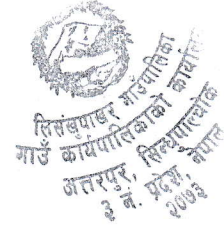 लिसंखुपाखर गाउँपालिका
गाउँ कार्यपालिकाको कार्यालय
अत्तरपुर, सिन्धुपाल्चोक
३ नं. प्रदेश, नेपाल
२०७३